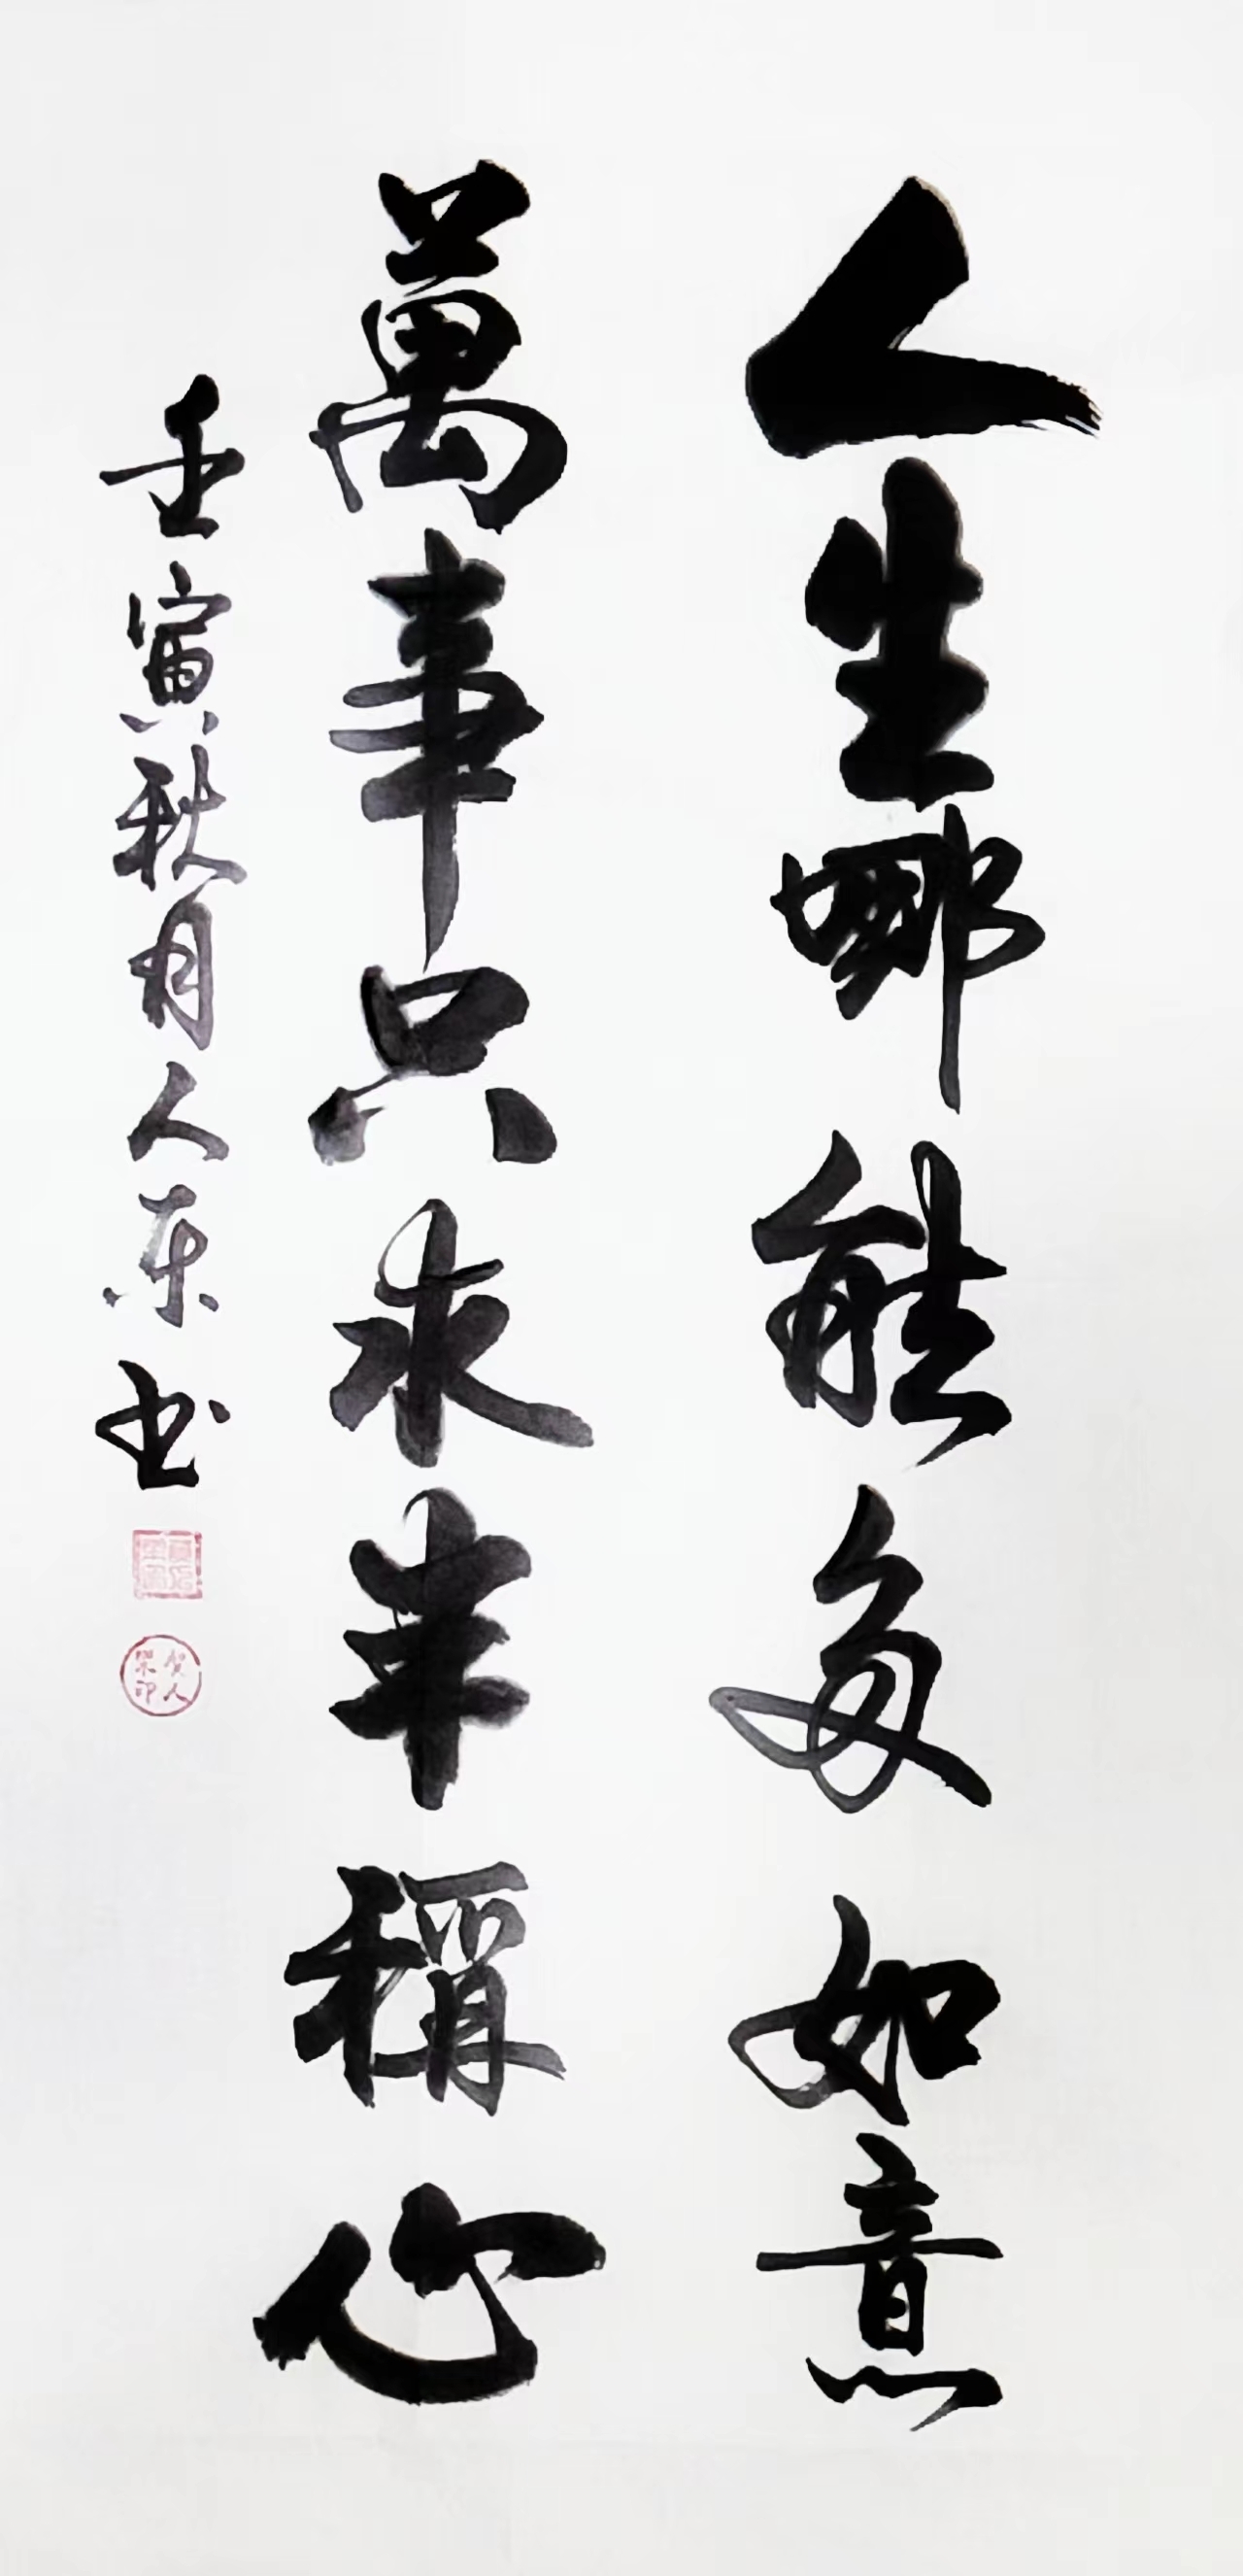 人生哪能多如意
萬事只求半稱心
壬寅秋月人東书